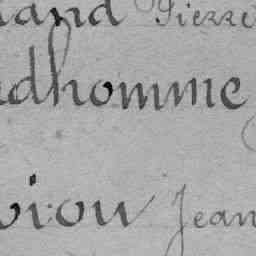 and Pierre
dhomme
iou Jean